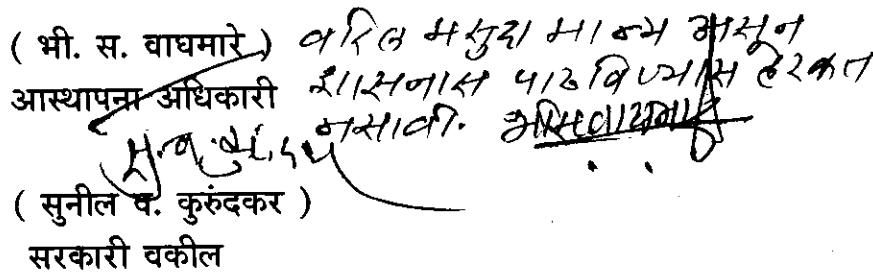 ( भी. स. वाघमारे ) वरिल मसुदा मान्य असून
आस्थापना अधिकारी शासनास पाठविण्यास हरकत
नसावी.
( सुनील व. कुरुंदकर )
सरकारी वकील